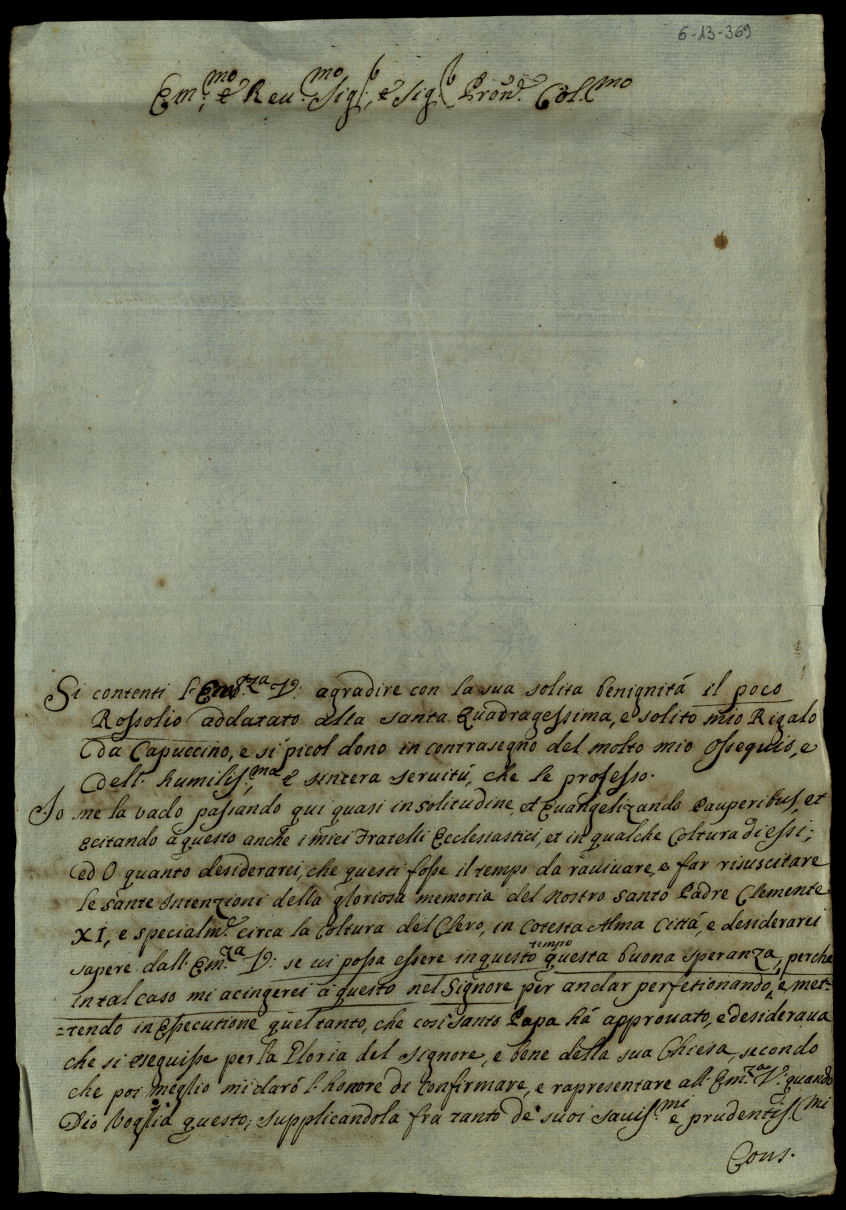 6-13-369
Em:mo e Reu.mo Sig.r, e Sig.r Pron.e Col.mo
Si contenti l'Em.za V: agradire con la sua solita benignitá il poco
Rossolio addatato alla santa Quadragessima, e solito mio Rigalo
da Capuccino, e si picol dono in contrasegno del molto mio ossequio, e
dell' humilis.ma e sincera seruitú, che le professo.
Io me la vado passando qui quasi in solitudine, et Euangelizando Pauperibus, et
ecitando a questo anche i miei Fratelli Ecclesiastici, et in qualche Coltura di essi;
ed O quanto desiderarei, che questi fosse il tempo da rauiuare, e far risuscitare
le sante Intenzioni della gloriosa memoria del nostro Santo Padre Clemente
XI, e specialm.e circa la Coltura del Clero, in cotesta Alma Cittá, e desiderarei
sapere dall' Em.za V: se ui possa essere in questo tempo questa buona speranza, perche
in tal caso mi acingerei a questo nel Signore per andar perfetionando, e met=
=tendo in Essecutione quel tanto, che cosi Santo Papa há approuato, e desideraua
che si eseguisse per la Gloria del Signore, e bene della sua Chiesa, secondo
che poi meglio mi daró l'honore di confirmare, e rapresentare all' Em.za V: quando
Dio Voglia questo; supplicandola fra tanto de' suoi sauis.mi e prudentis.mi
Cons.